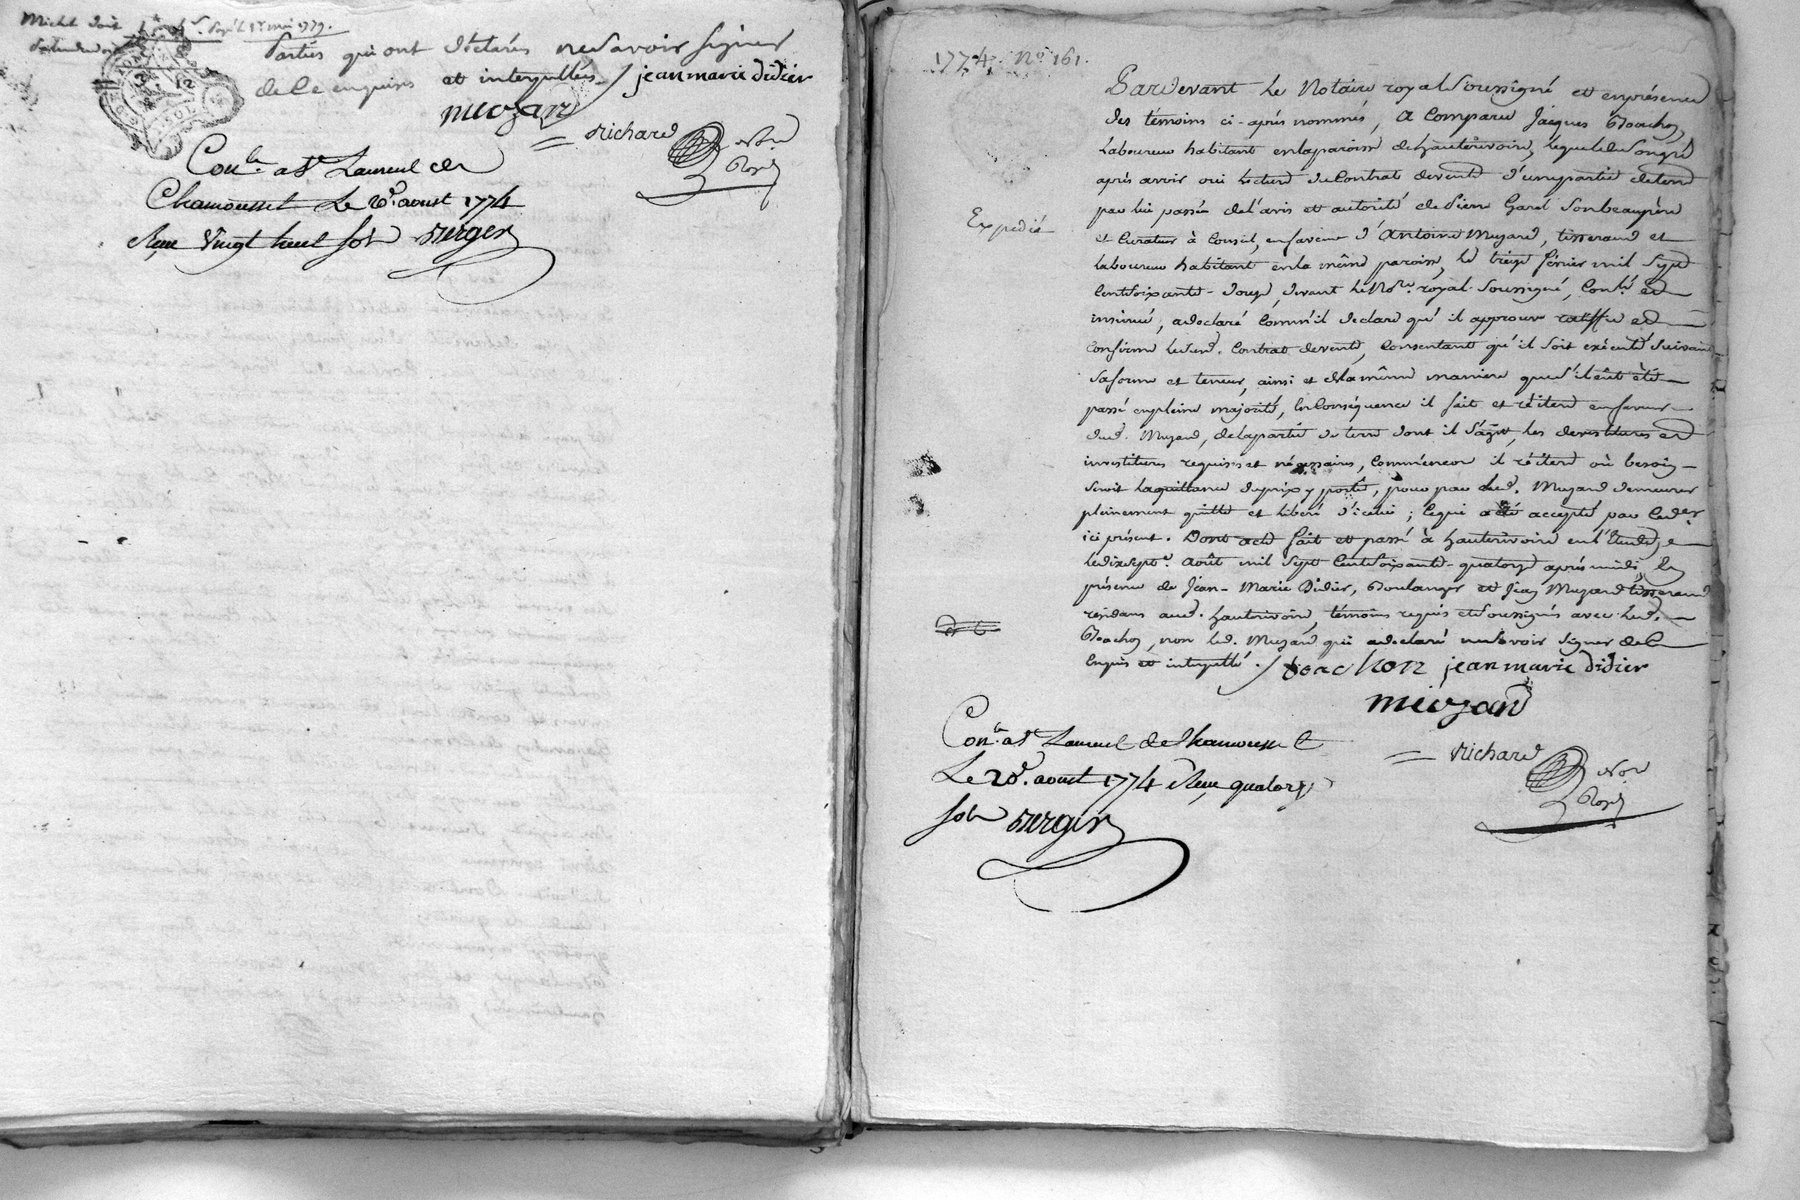 Michel doit
1# 4s. Payé le 1er mai 1779.
Parties qui ont déclarés ne savoir signer
de ce enquises et interpellées / jean marie didier
muzard
richard
Nore
Royal
Conle. a St Laurent de
Chamousset Le 28. aoust 1774
Reçu Vingt huit sols Berger
1774. No. 161.
Expedié
Pardevant le Notaire royal soussigné et en présence
des témoins ci-après nommés, a comparu Jacques
Laboureur habitant en la paroisse de hauterivoire, lequel de son gré
après avoir oui lecture du Contrat de vente d'une partie de terre
par lui passée de l'avis et autorité de Sieur son beaupère
et Curateur à Conseil, en faveur d'Antoine Muzard, tisserand et
laboureur habitant en la même paroisse, le treize février mil sept
Cent Soixante-douze, devant le Nore. royal soussigné, Conlé. et
insinué, a declaré comm'il declare qu'il approuve ratiffie et
confirme ledit. Contrat de vente, Consentant qu'il soit exécuté suivant
sa forme et teneur, ainsi et de la même maniere que s'il eût été
passé en pleine majorité, en Conséquence il fait et réitere en faveur
dud. Muzard, de la partie de terre dont il s'agit, les devestitures et
investitures requises et nécessaires, comme encore il réitere où besoin
seroit la quittance du prix y porté, pour par led. Muzard demeurer
pleinement quitte et liberé d'icelui; ce qui a été accepté par led. Mr
ici présent. Dont acte fait et passé à hauterivoire en l'Etude, le
dixsept. Août mil Sept Cent Soixante-quatorze après midi, en
présence de Jean-Marie Didier, Boulanger et Jean Muzard tisserand
résidans aud. hauterivoire, témoins requis et soussignés avec led.
non led. Muzard qui a declaré ne savoir signer de ce
enquis et interpellé. / jean marie didier
muzard
richard
Nore
Royal
Conlé. a St Laurent de Chamousset
Le 28. aoust 1774 Reçu quatorze
sols Berger